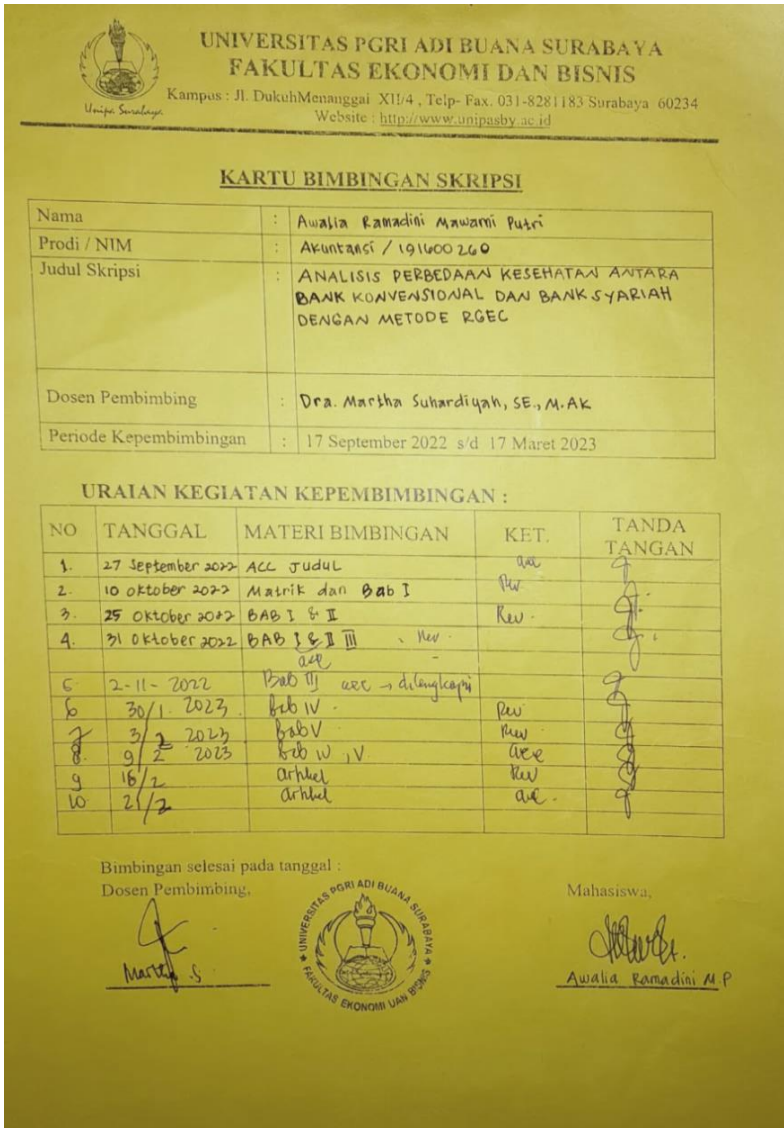 UNIVERSITAS PGRI ADI BUANA SURABAYA
FAKULTAS EKONOMI DAN BISNIS
Kampus : Jl. DukuhMenanggai XII/4 , Telp- Fax. 031-8281183 Surabaya 60234
Website : http://www.unipasby.ac.id
Unipa Surabaya
KARTU BIMBINGAN SKRIPSI
Nama : Awalia Ramadini Mawarni Putri
Prodi / NIM : Akuntansi / 191600260
Judul Skripsi : ANALISIS PERBEDAAN KESEHATAN ANTARA
BANK KONVENSIONAL DAN BANK SYARIAH
DENGAN METODE RGEC
Dosen Pembimbing : Dra. Martha Suhardiyah, SE., M.AK
Periode Kepembimbingan : 17 September 2022 s/d 17 Maret 2023
URAIAN KEGIATAN KEPEMBIMBINGAN :
NO TANGGAL MATERI BIMBINGAN KET. TANDA TANGAN
1. 27 September 2022 ACC Judul acc
2. 10 Oktober 2022 Matrik dan Bab I Rev
3. 25 Oktober 2022 BAB I & II Rev.
4. 31 Oktober 2022 BAB I & II III Rev.
acc
5 2-11-2022 Bab III acc → dilengkapi
6 30/1. 2023 Bab IV. Rev
7 3/2 2023 Bab V Rev
8. 9/2 2023 Bab IV, V. acc
9 16/2 artikel Rev
10 21/2 artikel acc.
Bimbingan selesai pada tanggal :
Dosen Pembimbing,
Mahasiswa,
UNIVERSITAS PGRI ADI BUANA SURABAYA
FAKULTAS EKONOMI DAN BISNIS
Martha S
Awalia Ramadini M.P